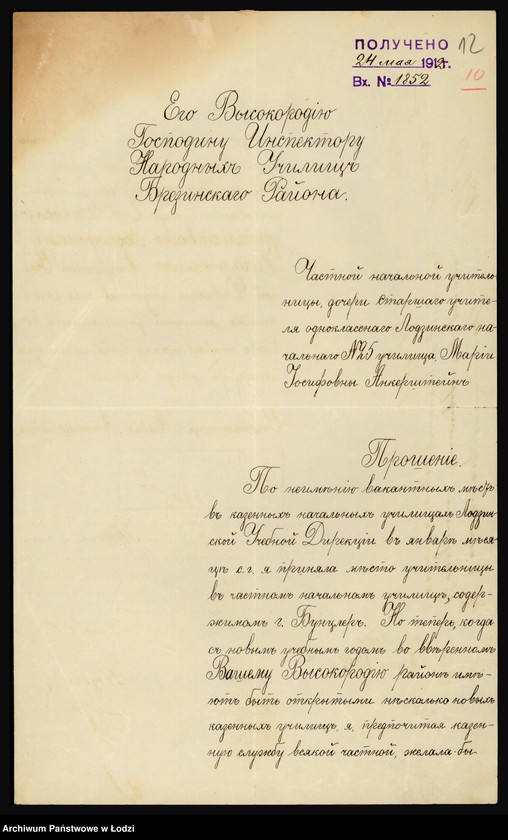 ПОЛУЧЕНО
12
24 мая 1912г.
Вх. № 1852
10
Его Высокородію
Господину Инспектору
Народныхъ Училищъ
Брезинскаго Района.
Частной начальной учитель-
ницы, дочери старшаго учите-
ля однокласснаго Лодзинскаго на-
чальнаго №25 училища, Маріи
Іосифовны Анкерштейнъ
Прошеніе.
По неимѣнію вакантныхъ мѣстъ
въ казенныхъ начальныхъ училищахъ Лодзин-
ской Учебной Дирекціи въ январѣ мѣся-
цѣ с.г. я приняла мѣсто учительницы
въ частномъ начальномъ училищѣ, содер-
жимомъ г. Бунцлеръ. Но теперь, когда
съ новымъ учебнымъ годомъ во ввѣренномъ
Вашему Высокородію районѣ имѣ-
ютъ быть открытыми нѣсколько новыхъ
казенныхъ училищъ, я, предпочитая казен-
ную службу всякой частной, желала-бы
Archiwum Państwowe w Łodzi